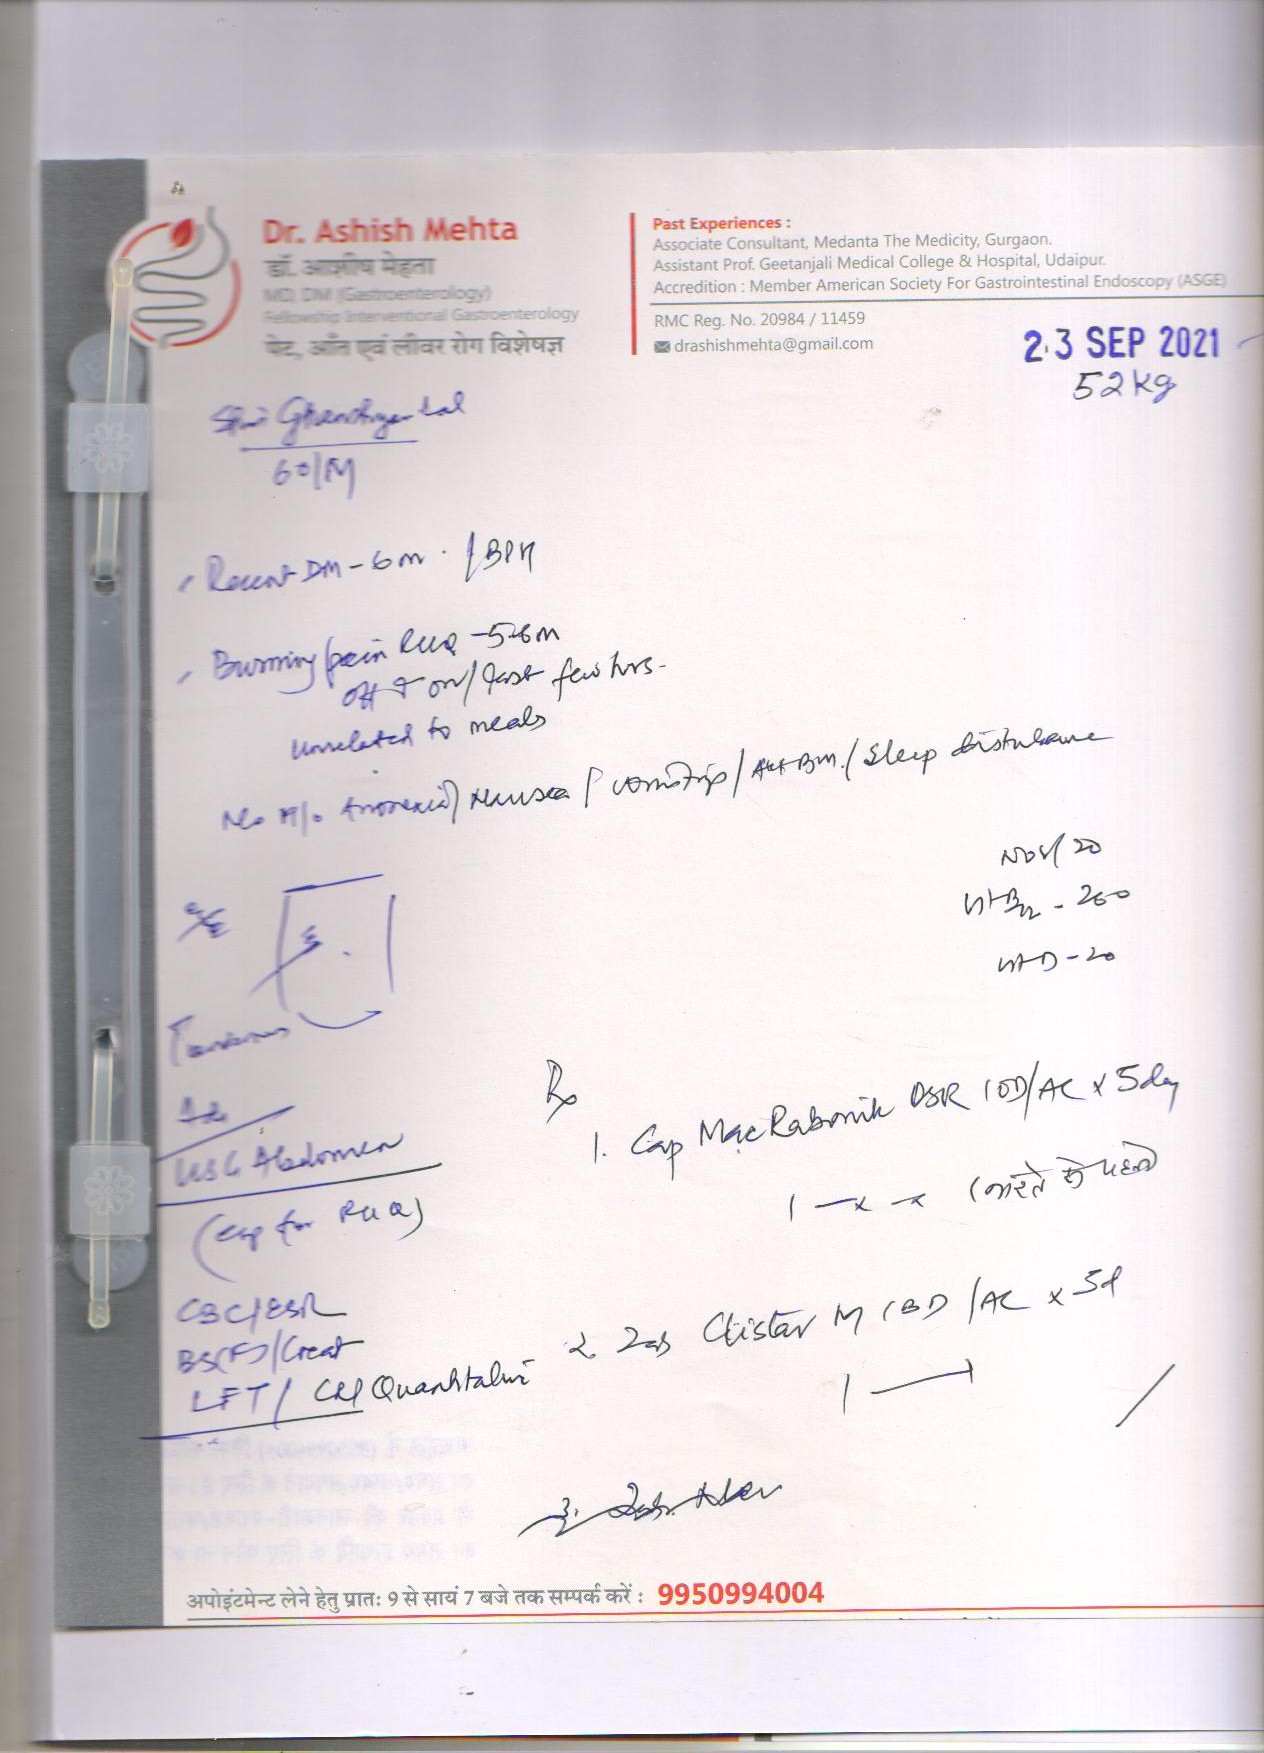 Dr. Ashish Mehta
डॉ. आशीष मेहता
MD, DM (Gastroenterology)
Fellowship Interventional Gastroenterology
पेट, आँत एवं लीवर रोग विशेषज्ञ
Past Experiences :
Associate Consultant, Medanta The Medicity, Gurgaon.
Assistant Prof. Geetanjali Medical College & Hospital, Udaipur.
Accredition : Member American Society For Gastrointestinal Endoscopy (ASGE)
RMC Reg. No. 20984 / 11459
drashishmehta@gmail.com
23 SEP 2021
52kg
60/M
Recent DM - 6m / BPH
Burning/pain RUQ - 5-6m
off & on/last few hrs.
Unrelated to meals
No H/o Anorexia/Nausea/Vomiting/Alt BM/Sleep disturbance
Nov/20
Vit B12 - 260
Vit D - 20
o/e
Adv
USG Abdomen
(esp for RUQ)
CBC/ESR
BS(F)/Creat
LFT/ CRP Quantitative
Rx
1. Cap Mac Rabonik DSR 1OD/AC x 5day
1 - x - x (नाश्ते से पहले)
2. Tab Clistar M 1BD /AC x 5d
अपोइंटमेन्ट लेने हेतु प्रातः 9 से सायं 7 बजे तक सम्पर्क करें : 9950994004